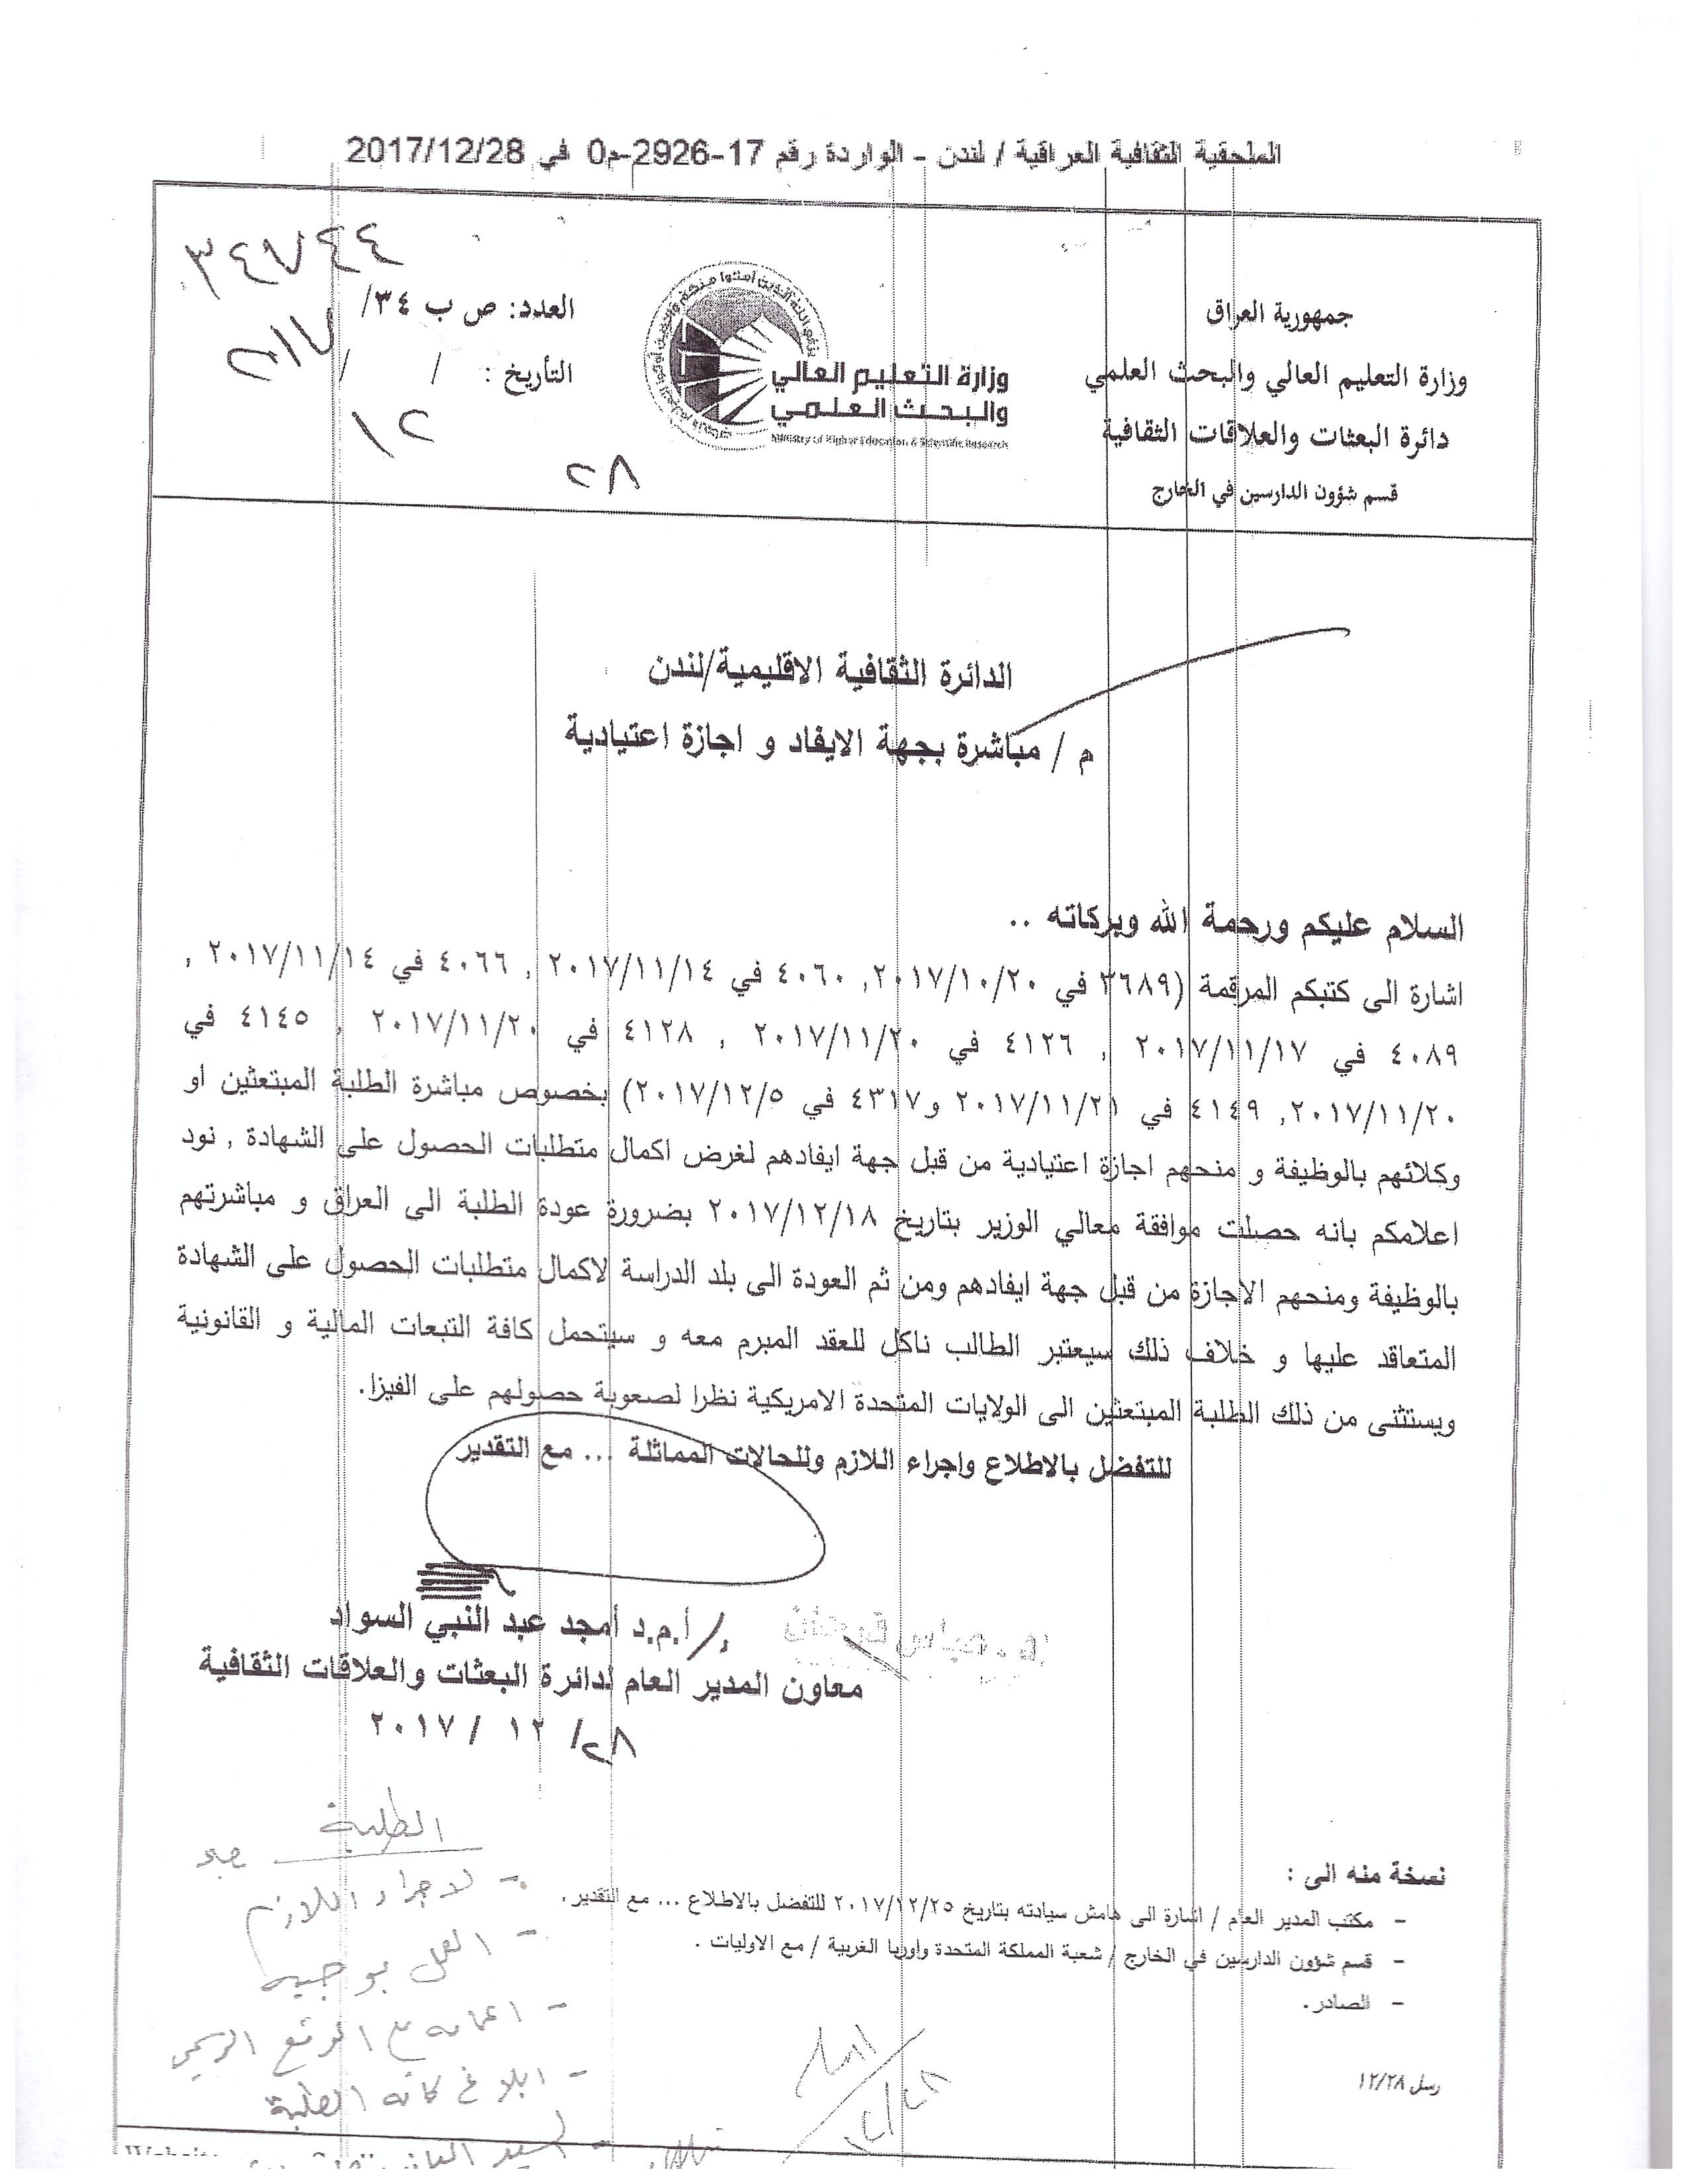 الملحقية الثقافية العراقية / لندن - الواردة رقم 17-2926-م0 في 2017/12/28
جمهورية العراق
وزارة التعليم العالي والبحث العلمي
دائرة البعثات والعلاقات الثقافية
قسم شؤون الدارسين في الخارج
وزارة التعليم العالي
والبحث العلمي
Ministry of Higher Education & Scientific Research
العدد: ص ب ٣٤/
٣٤٧٤٤
التأريخ : / /
٢٨
١٢
الدائرة الثقافية الاقليمية/لندن
م / مباشرة بجهة الايفاد و اجازة اعتيادية
السلام عليكم ورحمة الله وبركاته ..
اشارة الى كتبكم المرقمة (٣٦٨٩ في ٢٠١٧/١٠/٢٠, ٤٠٦٠ في ٢٠١٧/١١/١٤ , ٤٠٦٦ في ٢٠١٧/١١/١٤ ,
٤٠٨٩ في ٢٠١٧/١١/١٧ , ٤١٢٦ في ٢٠١٧/١١/٢٠ , ٤١٢٨ في ٢٠١٧/١١/٢٠ , ٤١٤٥ في
٢٠١٧/١١/٢٠, ٤١٤٩ في ٢٠١٧/١١/٢١ و٤٣١٧ في ٢٠١٧/١٢/٥) بخصوص مباشرة الطلبة المبتعثين او
وكلائهم بالوظيفة و منحهم اجازة اعتيادية من قبل جهة ايفادهم لغرض اكمال متطلبات الحصول على الشهادة , نود
اعلامكم بانه حصلت موافقة معالي الوزير بتاريخ ٢٠١٧/١٢/١٨ بضرورة عودة الطلبة الى العراق و مباشرتهم
بالوظيفة ومنحهم الاجازة من قبل جهة ايفادهم ومن ثم العودة الى بلد الدراسة لاكمال متطلبات الحصول على الشهادة
المتعاقد عليها و خلاف ذلك سيعتبر الطالب ناكل للعقد المبرم معه و سيتحمل كافة التبعات المالية و القانونية
ويستثنى من ذلك الطلبة المبتعثين الى الولايات المتحدة الامريكية نظرا لصعوبة حصولهم على الفيزا.
للتفضل بالاطلاع واجراء اللازم وللحالات المماثلة ... مع التقدير
أ.م.د أمجد عبد النبي السواد
معاون المدير العام لدائرة البعثات والعلاقات الثقافية
٢٨/ ١٢ / ٢٠١٧
نسخة منه الى :
- مكتب المدير العام / اشارة الى هامش سيادته بتاريخ ٢٠١٧/١٢/٢٥ للتفضل بالاطلاع ... مع التقدير.
- قسم شؤون الدارسين في الخارج / شعبة المملكة المتحدة واوربا الغربية / مع الاوليات .
- الصادر.
رسل ١٢/٢٨
الطلبة
- لاجراء اللازم
- العمل بموجبه
- اعمامه على الموقع الرسمي
- ابلاغ كافة الطلبة
١٢/٢٨